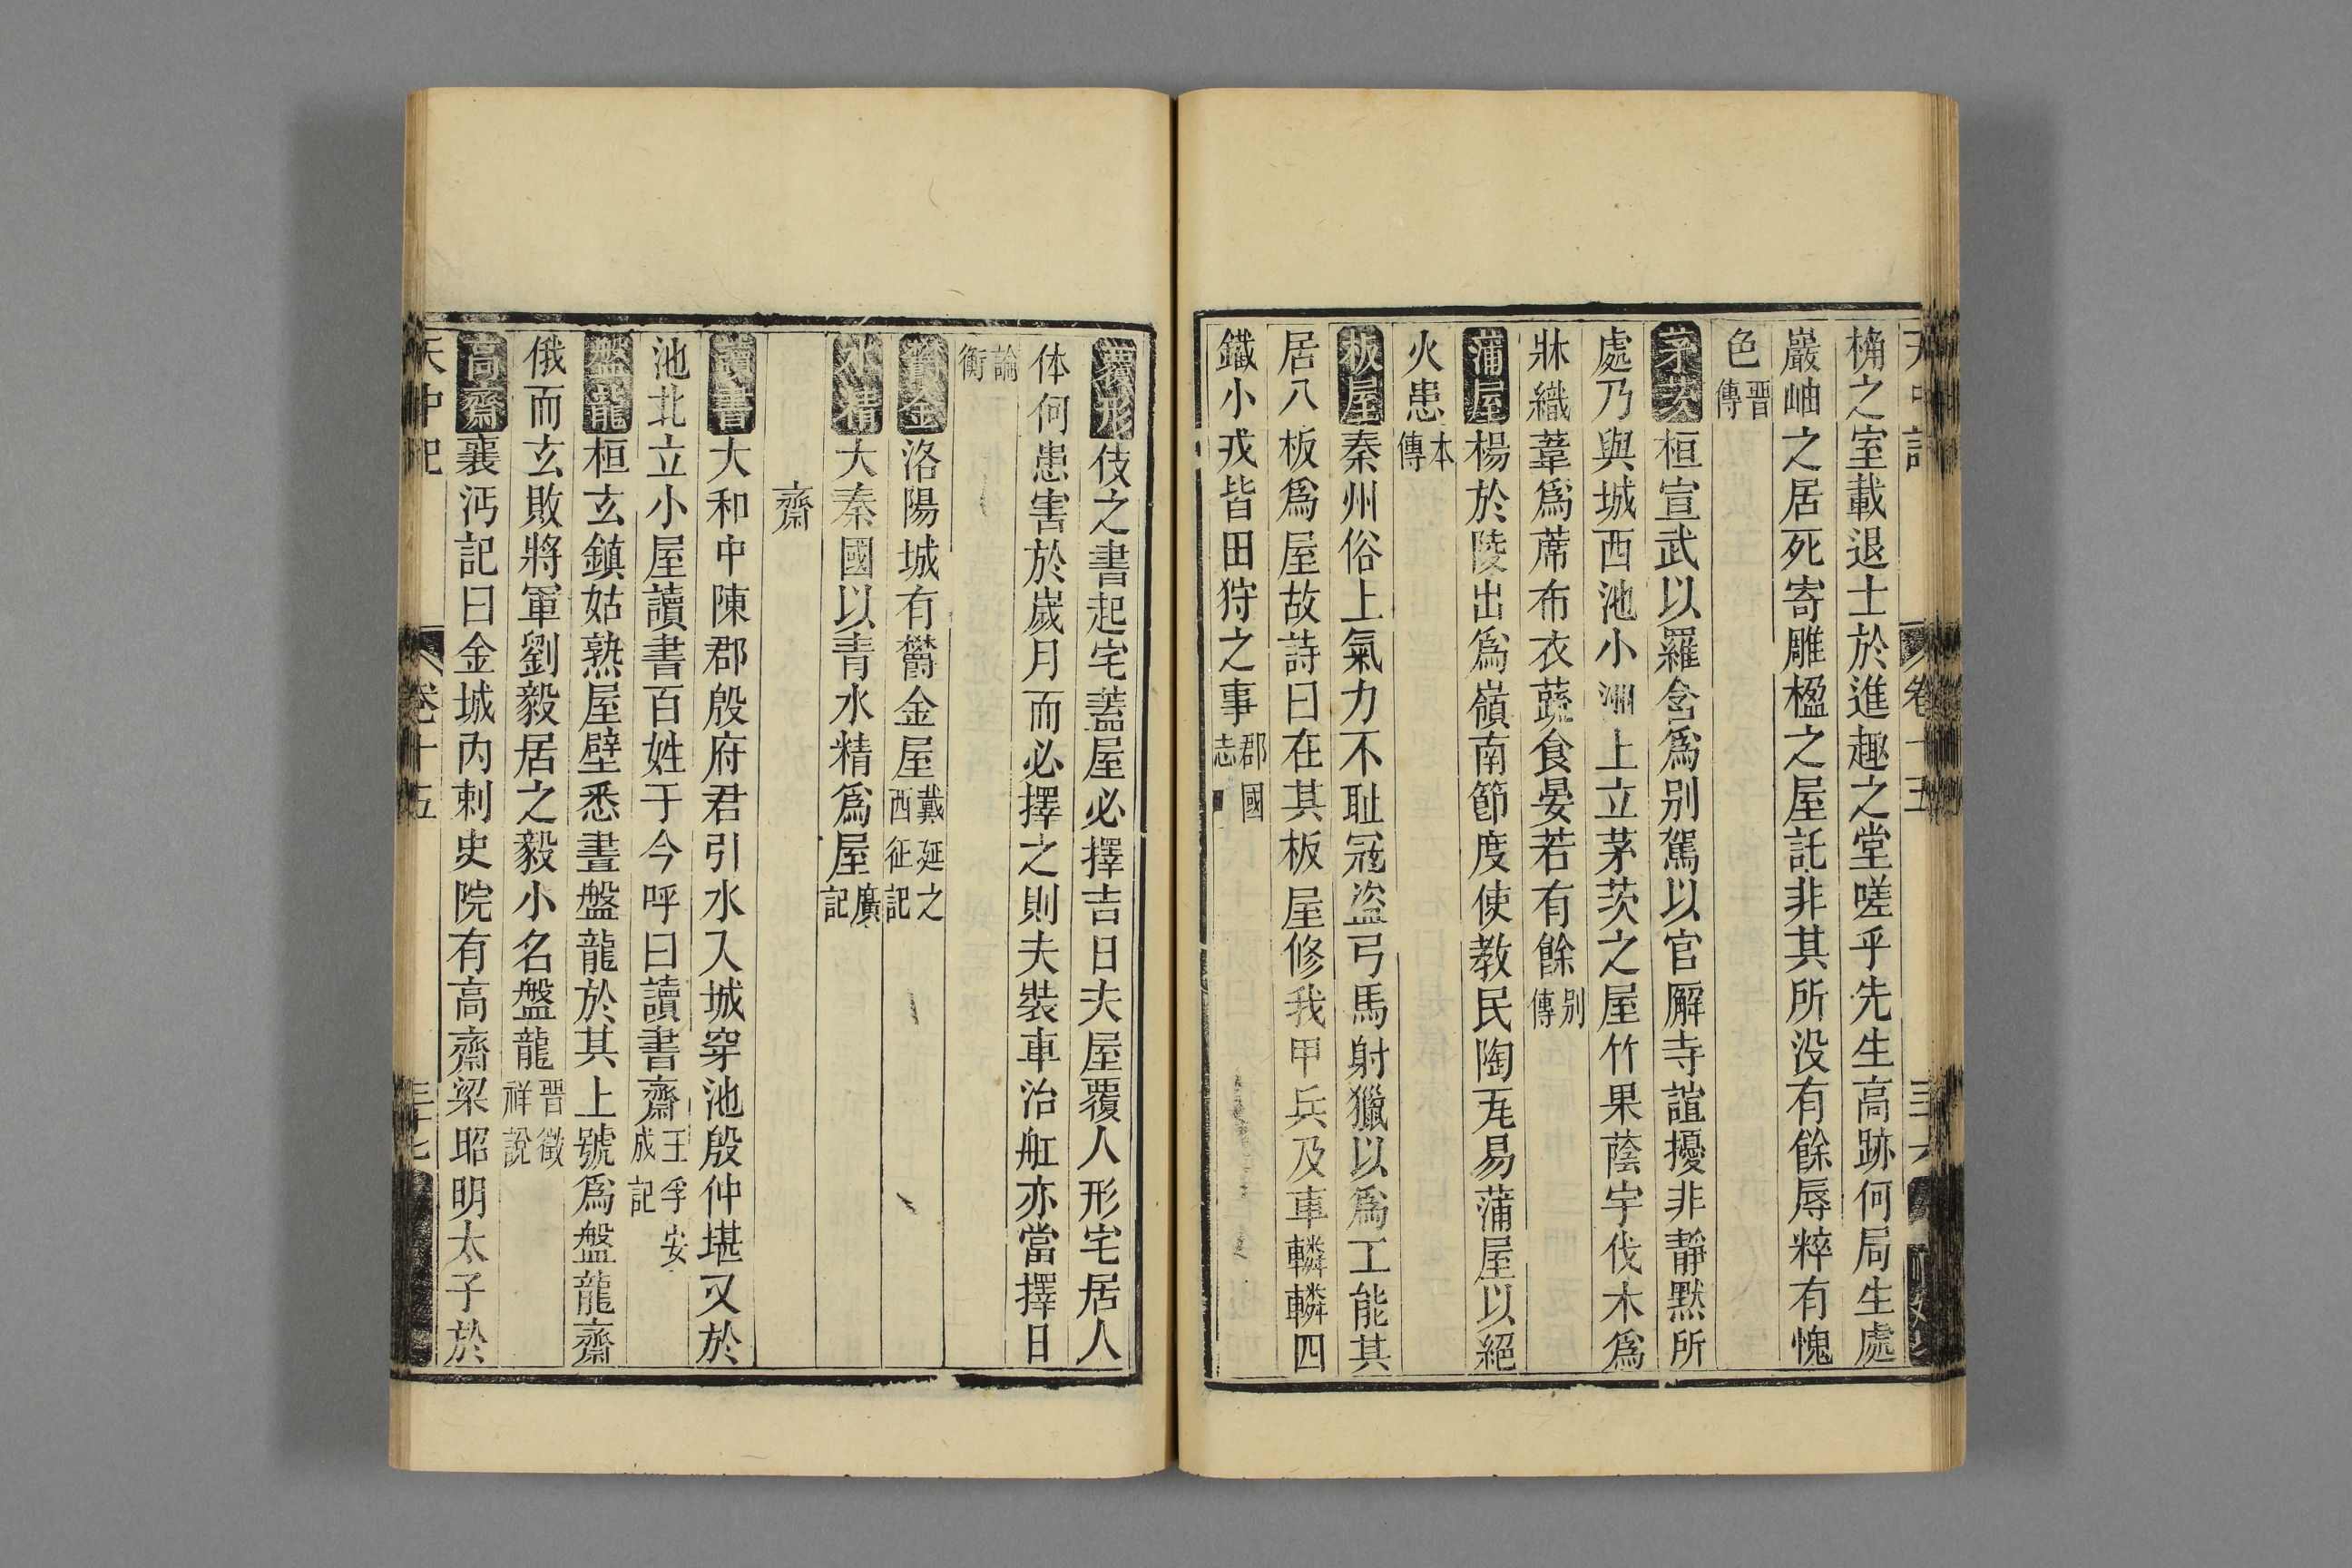 天中記 卷十五 三十六
桷之室載退士於進趣之堂嗟乎先生高跡何局生處
巖岫之居死寄雕楹之屋託非其所没有餘辱粹有愧
色晉傳
茅茨桓宣武以羅含爲别駕以官廨寺諠擾非靜默所
處乃與城西池小洲上立茅茨之屋竹果蔭宇伐木爲
牀織葦爲蓆布衣蔬食晏若有餘别傳
蒲屋楊於陵出爲嶺南節度使教民陶瓦易蒲屋以絕
火患本傳
板屋秦州俗上氣力不耻冦盗弓馬射獵以爲工能其
居八板爲屋故詩曰在其板屋修我甲兵及車轔轔四
鐵小戎皆田狩之事郡國志
覆形伎之書起宅蓋屋必擇吉日夫屋覆人形宅居人
体何患害於歲月而必擇之則夫裝車治舡亦當擇日
論衡
欝金洛陽城有欝金屋戴延之西征記
水精大秦國以青水精爲屋廣記
齋
讀書大和中陳郡殷府君引水入城穿池殷仲堪又於
池北立小屋讀書百姓于今呼曰讀書齋王孚安成記
盤龍桓玄鎮姑熟屋壁悉畫盤龍於其上號爲盤龍齋
俄而玄敗將軍劉毅居之毅小名盤龍晉徵祥說
高齋襄沔記曰金城内刺史院有高齋梁昭明太子於
天中記 卷十五 三十七